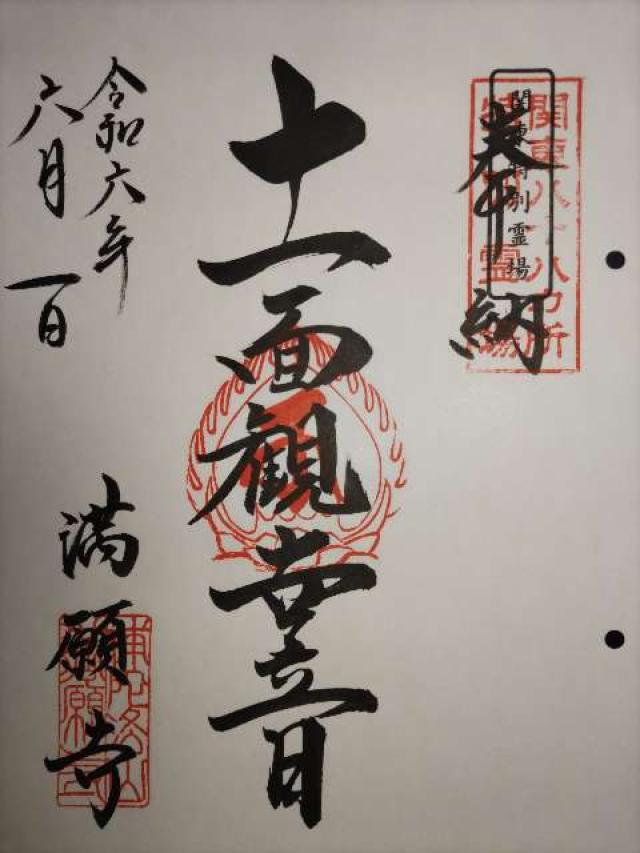 奉納
関東特別霊場
関東八十八カ所
特別霊場
十一面観世音
令和六年
六月一日
満願寺